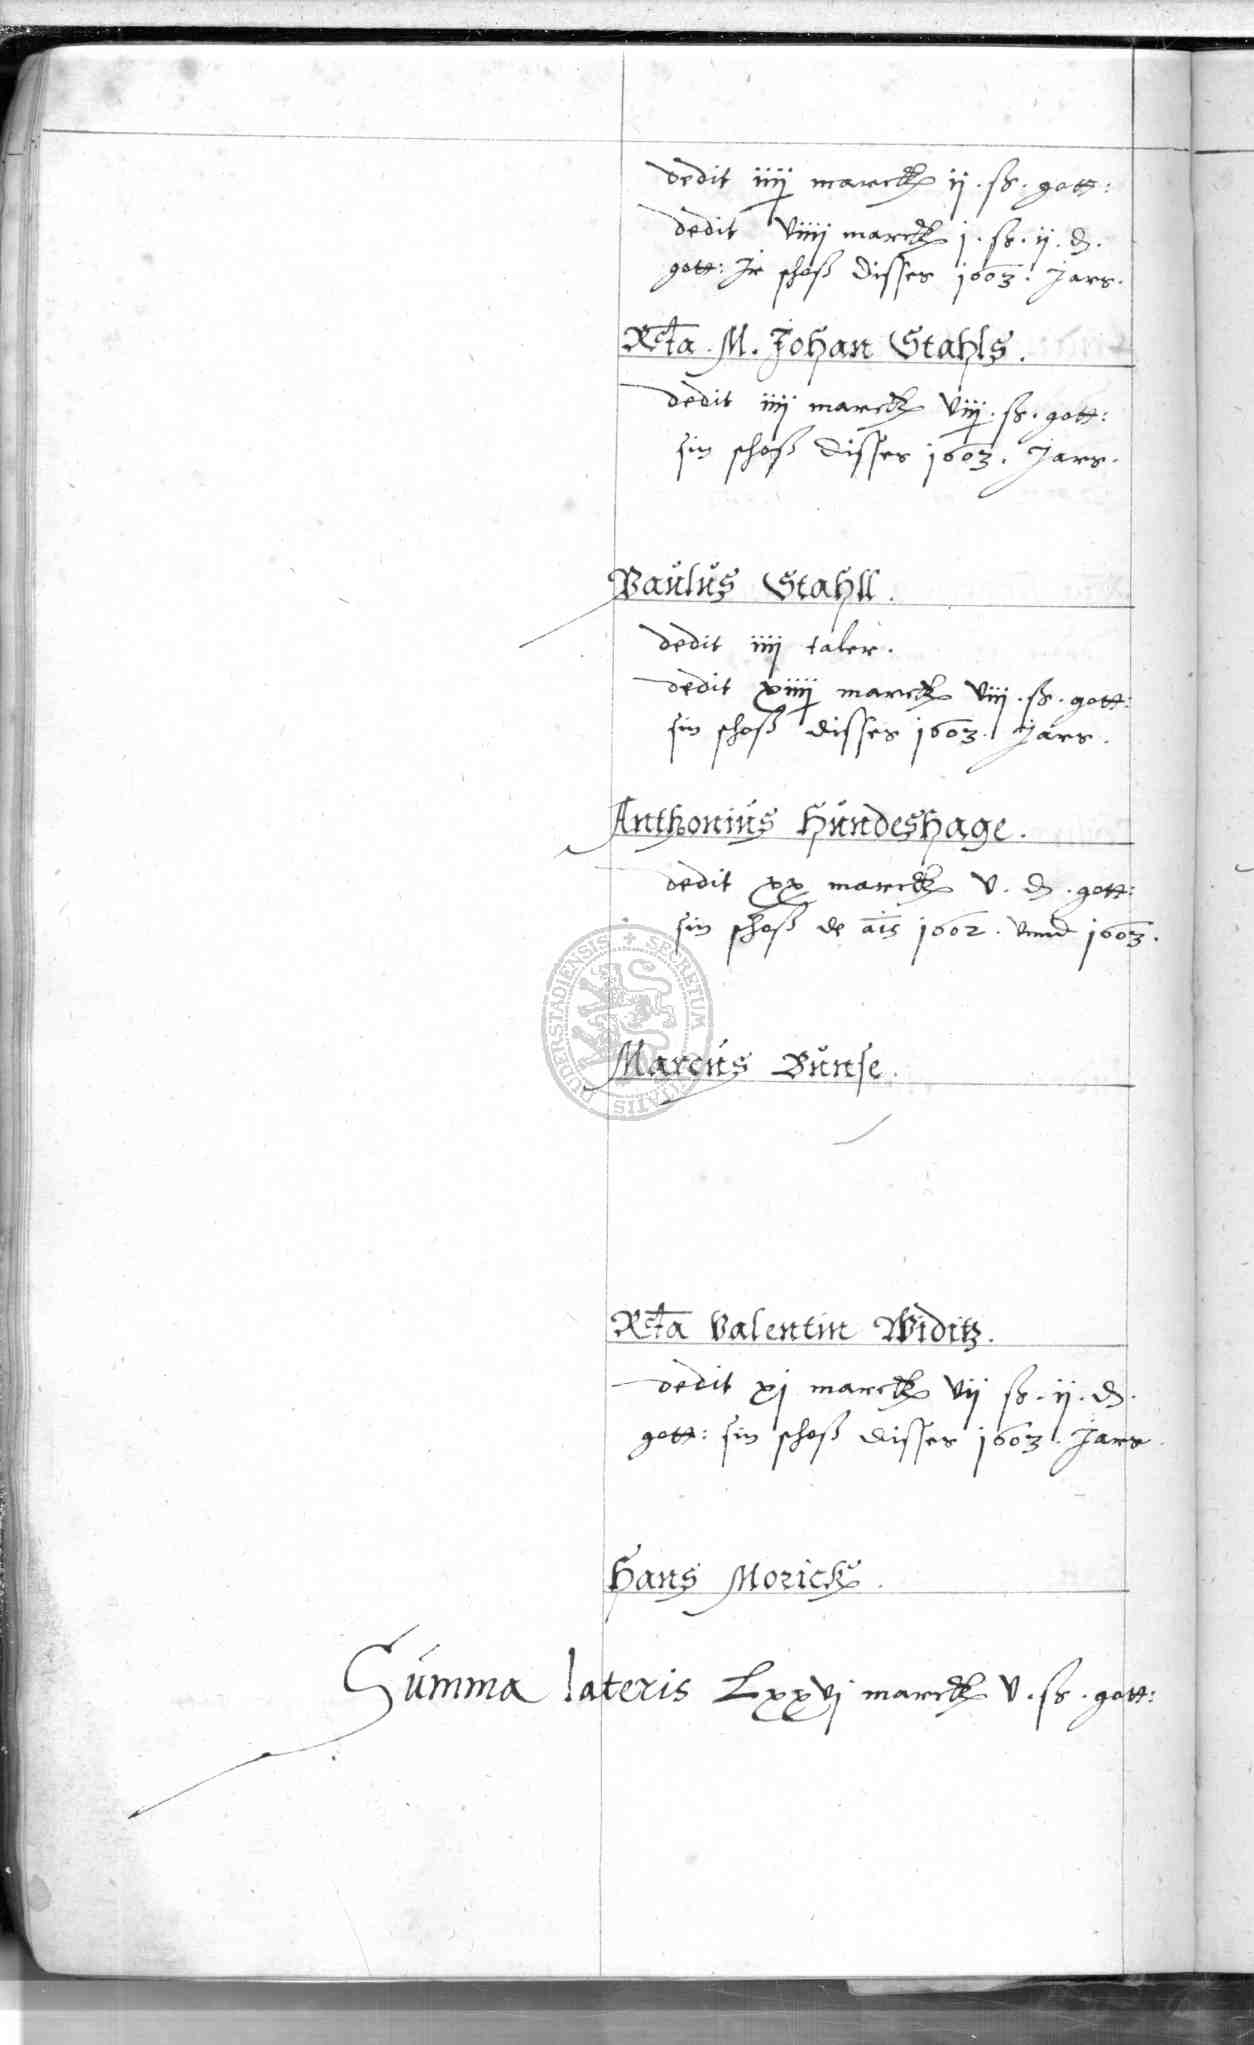 dedit iiij marck ij . ß . gott:
dedit viiij marck j . ß . ij . ₰ .
gott: Jr schoß disses 1603 . Jars .
Rcta . M . Johan Stahls .
dedit iiij marck viij . ß . gott:
sin schoß disses 1603 . Jars .
Paulus Stahll .
dedit iiij taler .
dedit xiiij marck viiij . ß . gott:
sin schoß disses 1603 . Jars .
Anthonius Hundeshage .
dedit xx marck v . ₰ . gott:
sin schoß de ais 1602 . vnnd 1603 .
SECRETUM CIVITATIS DUDERSTADIENSIS
Marcus Bunse .
Rcta Valentin Widitz .
dedit xj marck vij ß . ij . ₰ .
gott: sin schoß disses 1603 . Jars .
Hans Morick .
Summa lateris Lxxvj marck v . ß . gott: